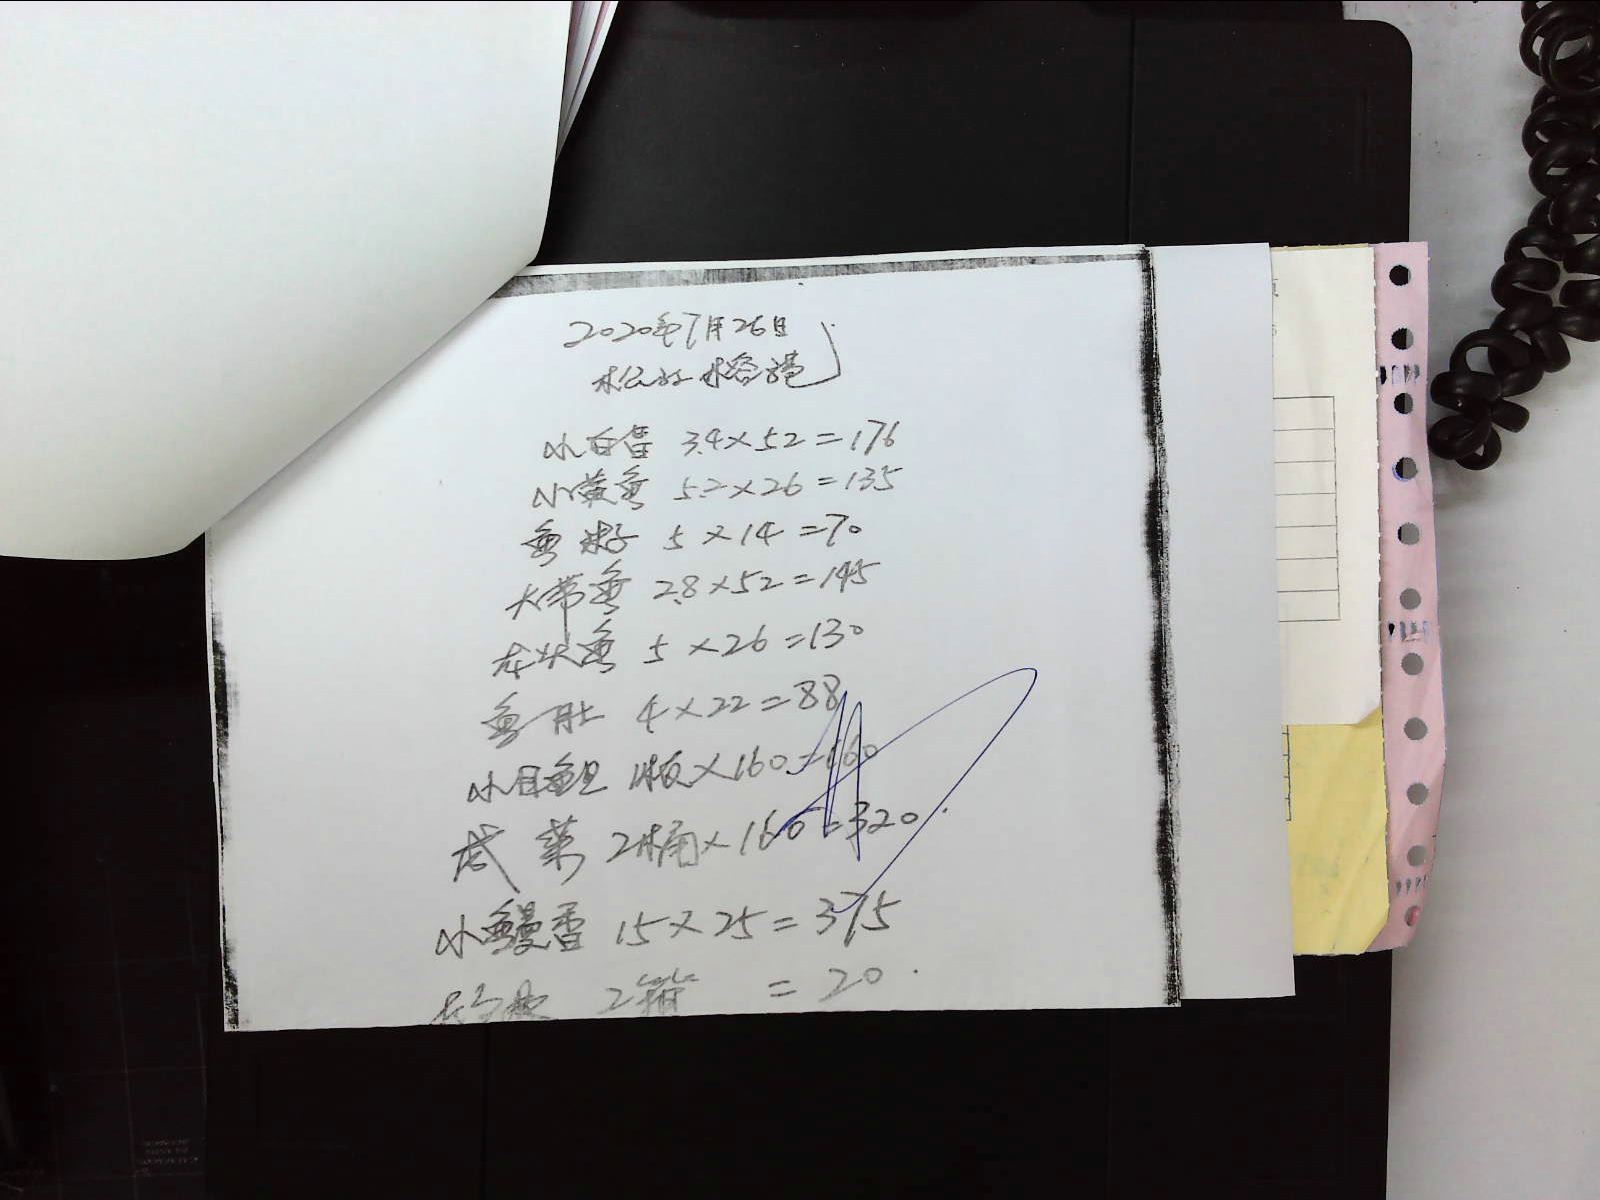 2020年7月26日
松江 榕港
小白雪 3.4×52=176
小黄鱼 5.2×26=135
鱼籽 5×14=70
大带鱼 2.8×52=145
龙头鱼 5×26=130
鱼肚 4×22=88
小目鱼旦 1板×160=160
咸菜 2桶×160=320
小鳗雷 15×25=375
2箱 =20